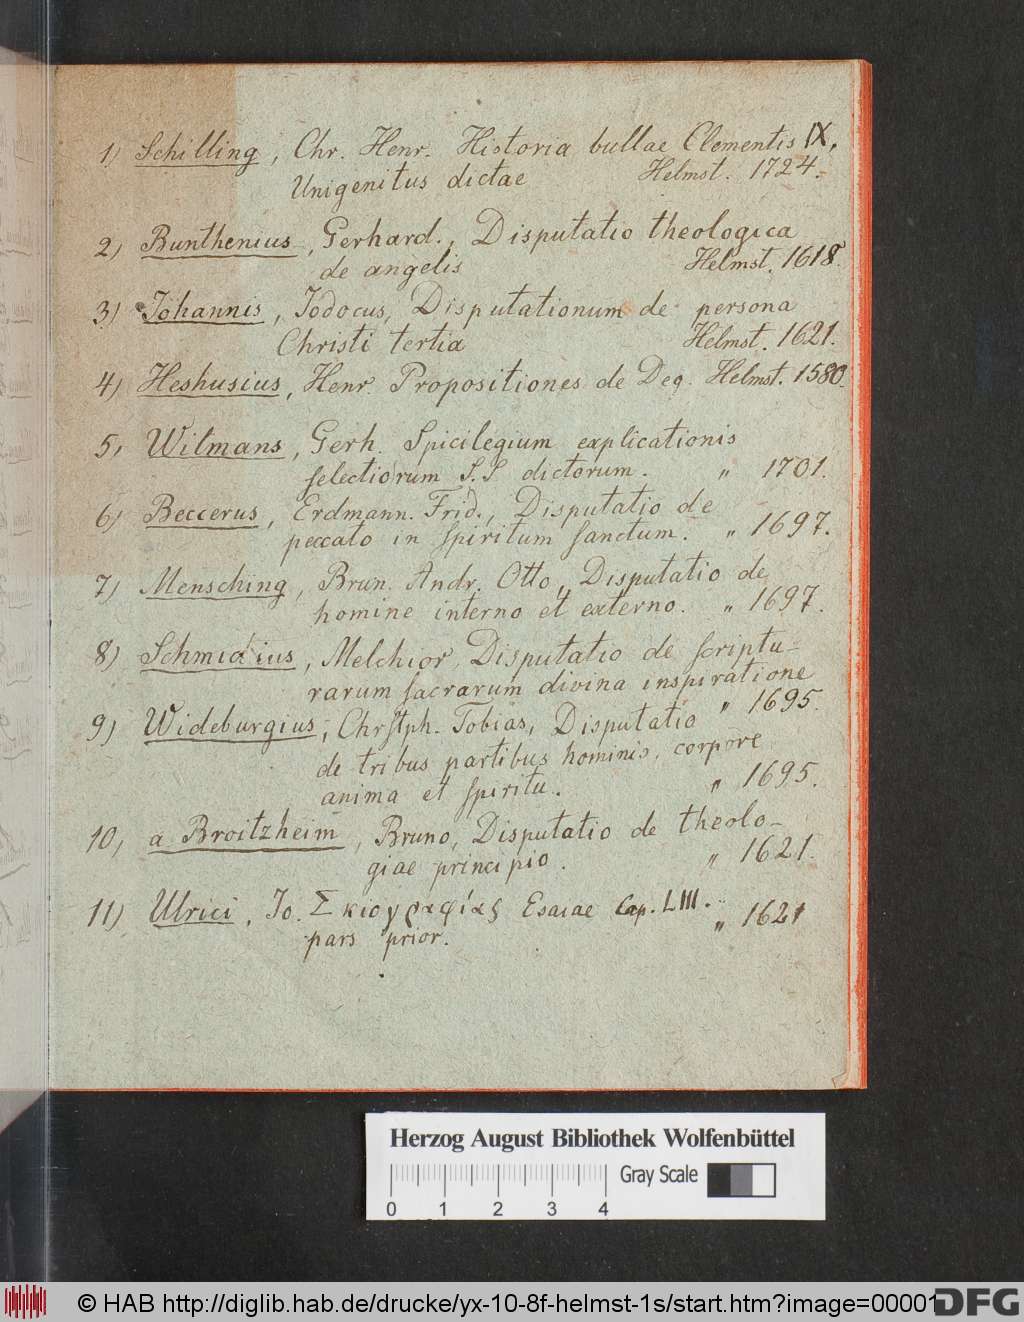 1) Schilling, Chr. Henr. Historia bullae Clementis IX,
Unigenitus dictae Helmst. 1724.
2) Bunthenius, Gerhard., Disputatio theologica
de angelis Helmst. 1618.
3) Johannis, Jodocus, Disputationum de persona
Christi tertia Helmst. 1621.
4) Heshusius, Henr. Propositiones de Deo. Helmst. 1580.
5, Witmans, Gerh. Spicilegium explicationis
selectiorum S.S dictorum. " 1701.
6) Beccerus, Erdmann. Frid., Disputatio de
peccato in Spiritum sanctum. " 1697.
7) Mensching, Brun. Andr. Otto, Disputatio de
homine interno et externo. " 1697.
8) Schmidius, Melchior, Disputatio de scriptu-
rarum sacrarum divina inspiratione
" 1695.
9) Wideburgius, Chrstph. Tobias, Disputatio
de tribus partibus hominis, corpore
anima et spiritu. " 1695.
10, a Broitzheim, Bruno, Disputatio de theolo-
giae principio. " 1621.
11) Ulrici, Jo. Σκιογραφίας Esaiae Cap. LIII.
pars prior. " 1621
Herzog August Bibliothek Wolfenbüttel
Gray Scale
0 1 2 3 4
© HAB http://diglib.hab.de/drucke/yx-10-8f-helmst-1s/start.htm?image=00001
DFG